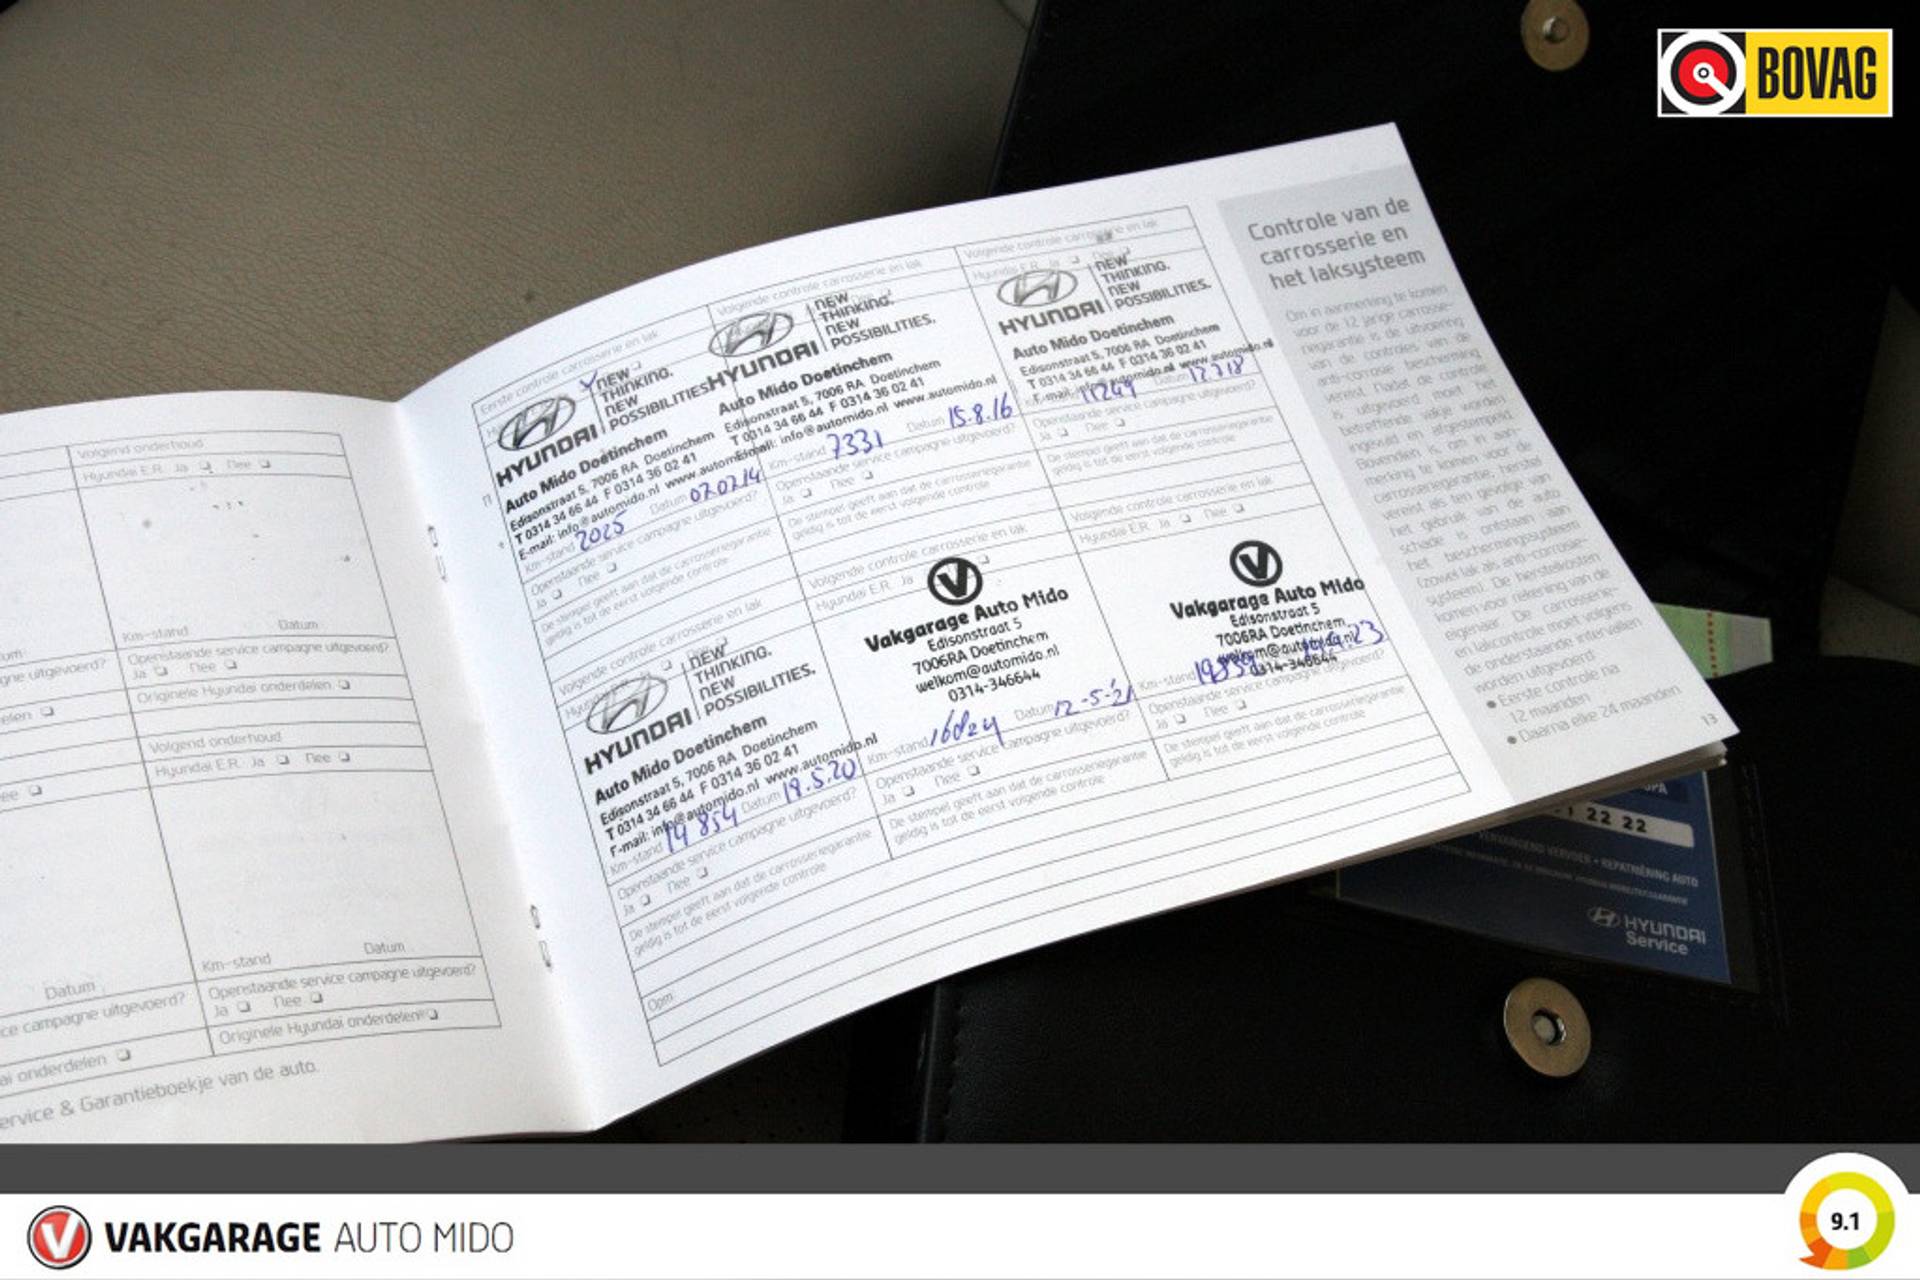 BOVAG
Volgend onderhoud
Hyundai E.R. Ja Nee
Km-stand Datum
Openstaande service campagne uitgevoerd?
Ja Nee
Originele Hyundai onderdelen
Volgend onderhoud
Hyundai E.R. Ja Nee
Datum
Km-stand Datum
Openstaande service campagne uitgevoerd?
Ja Nee
Originele Hyundai onderdelen
Service & Garantieboekje van de auto.
Eerste controle carrosserie en lak
NEW
THINKING.
NEW
POSSIBILITIES.
HYUNDAI
Auto Mido Doetinchem
Edisonstraat 5, 7006 RA Doetinchem
T 0314 34 66 44 F 0314 36 02 41
E-mail: info@automido.nl www.automido.nl
Km-stand 2025 Datum 07.07.14
Openstaande service campagne uitgevoerd?
Ja Nee
De stempel geeft aan dat de carrosseriegarantie
geldig is tot de eerst volgende controle
Volgende controle carrosserie en lak
NEW
THINKING.
NEW
POSSIBILITIES.
HYUNDAI
Auto Mido Doetinchem
Edisonstraat 5, 7006 RA Doetinchem
T 0314 34 66 44 F 0314 36 02 41
E-mail: info@automido.nl www.automido.nl
Km-stand 7331 Datum 15.8.16
Openstaande service campagne uitgevoerd?
Ja Nee
De stempel geeft aan dat de carrosseriegarantie
geldig is tot de eerst volgende controle
Volgende controle carrosserie en lak
Hyundai E.R. Ja
NEW
THINKING.
NEW
POSSIBILITIES.
HYUNDAI
Auto Mido Doetinchem
Edisonstraat 5, 7006 RA Doetinchem
T 0314 34 66 44 F 0314 36 02 41
E-mail: info@automido.nl www.automido.nl
11249 Datum 12.7.18
Openstaande service campagne uitgevoerd?
Ja Nee
De stempel geeft aan dat de carrosseriegarantie
geldig is tot de eerst volgende controle
Volgende controle carrosserie en lak
NEW
THINKING.
NEW
POSSIBILITIES.
HYUNDAI
Auto Mido Doetinchem
Edisonstraat 5, 7006 RA Doetinchem
T 0314 34 66 44 F 0314 36 02 41
E-mail: info@automido.nl www.automido.nl
Km-stand 14 854 Datum 19.5.20
Openstaande service campagne uitgevoerd?
Ja Nee
De stempel geeft aan dat de carrosseriegarantie
geldig is tot de eerst volgende controle
Volgende controle carrosserie en lak
Hyundai E.R. Ja
V
Vakgarage Auto Mido
Edisonstraat 5
7006RA Doetinchem
welkom@automido.nl
0314-346644
Km-stand Datum 12-5-21
Openstaande service campagne uitgevoerd?
Ja Nee
De stempel geeft aan dat de carrosseriegarantie
geldig is tot de eerst volgende controle
Volgende controle carrosserie en lak
Hyundai E.R. Ja Nee
V
Vakgarage Auto Mido
Edisonstraat 5
7006RA Doetinchem
welkom@automido.nl
0314-346644
Km-stand
Openstaande service campagne uitgevoerd?
Ja Nee
De stempel geeft aan dat de carrosseriegarantie
geldig is tot de eerst volgende controle
Opm
Controle van de
carrosserie en
het laksysteem
Om in aanmerking te komen
voor de 12 jarige carrosse-
riegarantie is de uitvoering
van de controles van de
anti-corrosie bescherming
vereist. Nadat de controle
is uitgevoerd moet het
betreffende vakje worden
ingevuld en afgestempeld.
Bovendien is, om in aan-
merking te komen voor de
carrosseriegarantie, herstel
vereist als ten gevolge van
het gebruik van de auto
schade is ontstaan aan
het beschermingssysteem
(zowel lak als anti-corrosie-
systeem). De herstelkosten
komen voor rekening van de
eigenaar. De carrosserie-
en lakcontrole moet volgens
de onderstaande intervallen
worden uitgevoerd:
• Eerste controle na
12 maanden
• Daarna elke 24 maanden
13
22 22
VERVANGEND VERVOER • REPATRIËRING AUTO
HYUNDAI
Service
V VAKGARAGE AUTO MIDO
9.1